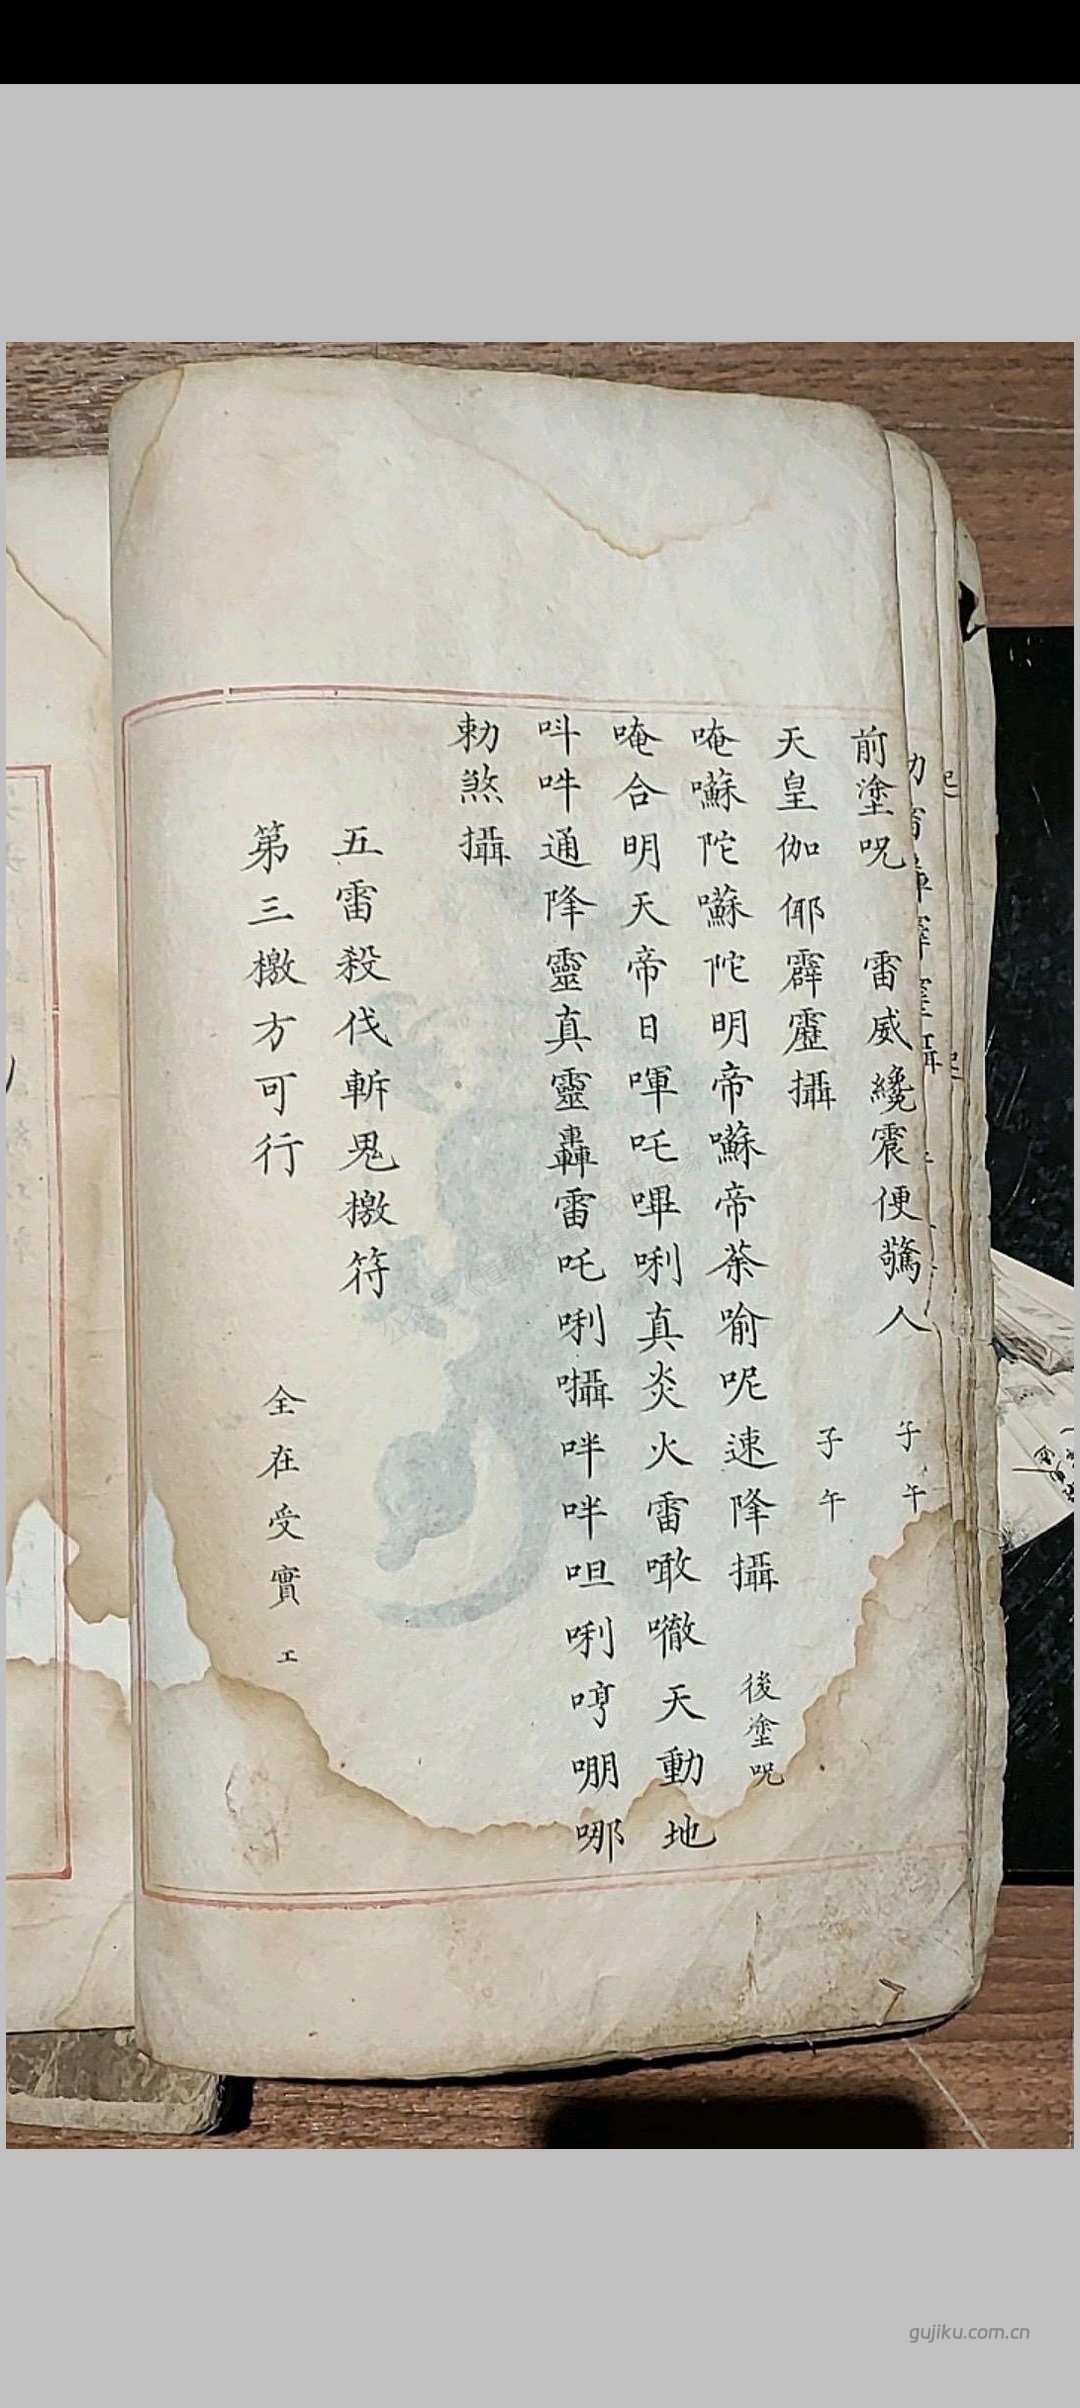 前塗呪　雷威纔震便驚人　子午
天皇伽倻霹靂攝　子午
唵囌陀囌陀明帝囌帝荼喻呢速降攝　後塗呪
唵合明天帝日喗吒嗶唎真炎火雷噉㘉天動地
呌吽通降靈真靈轟雷吒唎囁吽吽呾唎哼嘣哪
勅煞攝
五雷殺伐斬鬼檄符
第三檄方可行　全在受實工
gujiku.com.cn